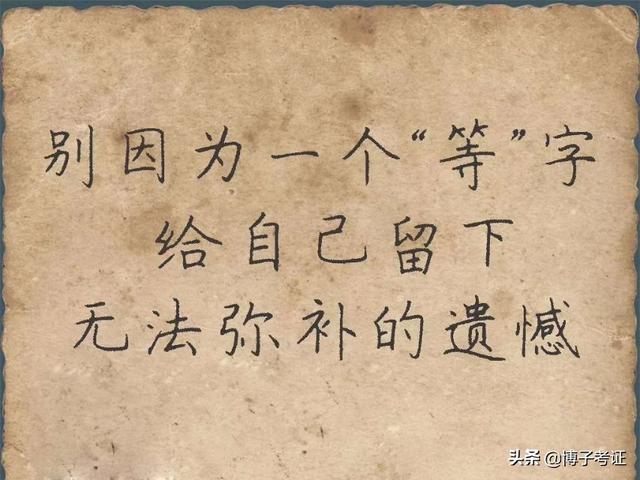 别因为一个“等”字
给自己留下
无法弥补的遗憾
头条 @博子考证